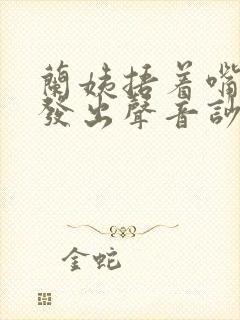 蘭姨捂着嘴
發出聲音訬
金蛇